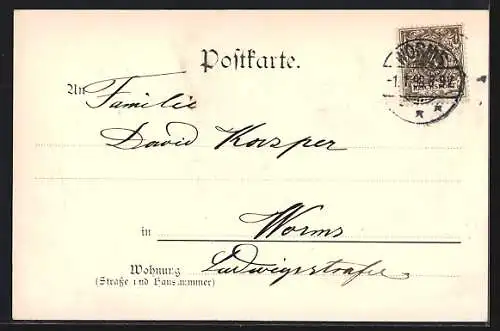 Postkarte.
WORMS
An Familie
David Kasper
in Worms
Wohnung Ludwigsstraße
(Straße und Hausnummer)